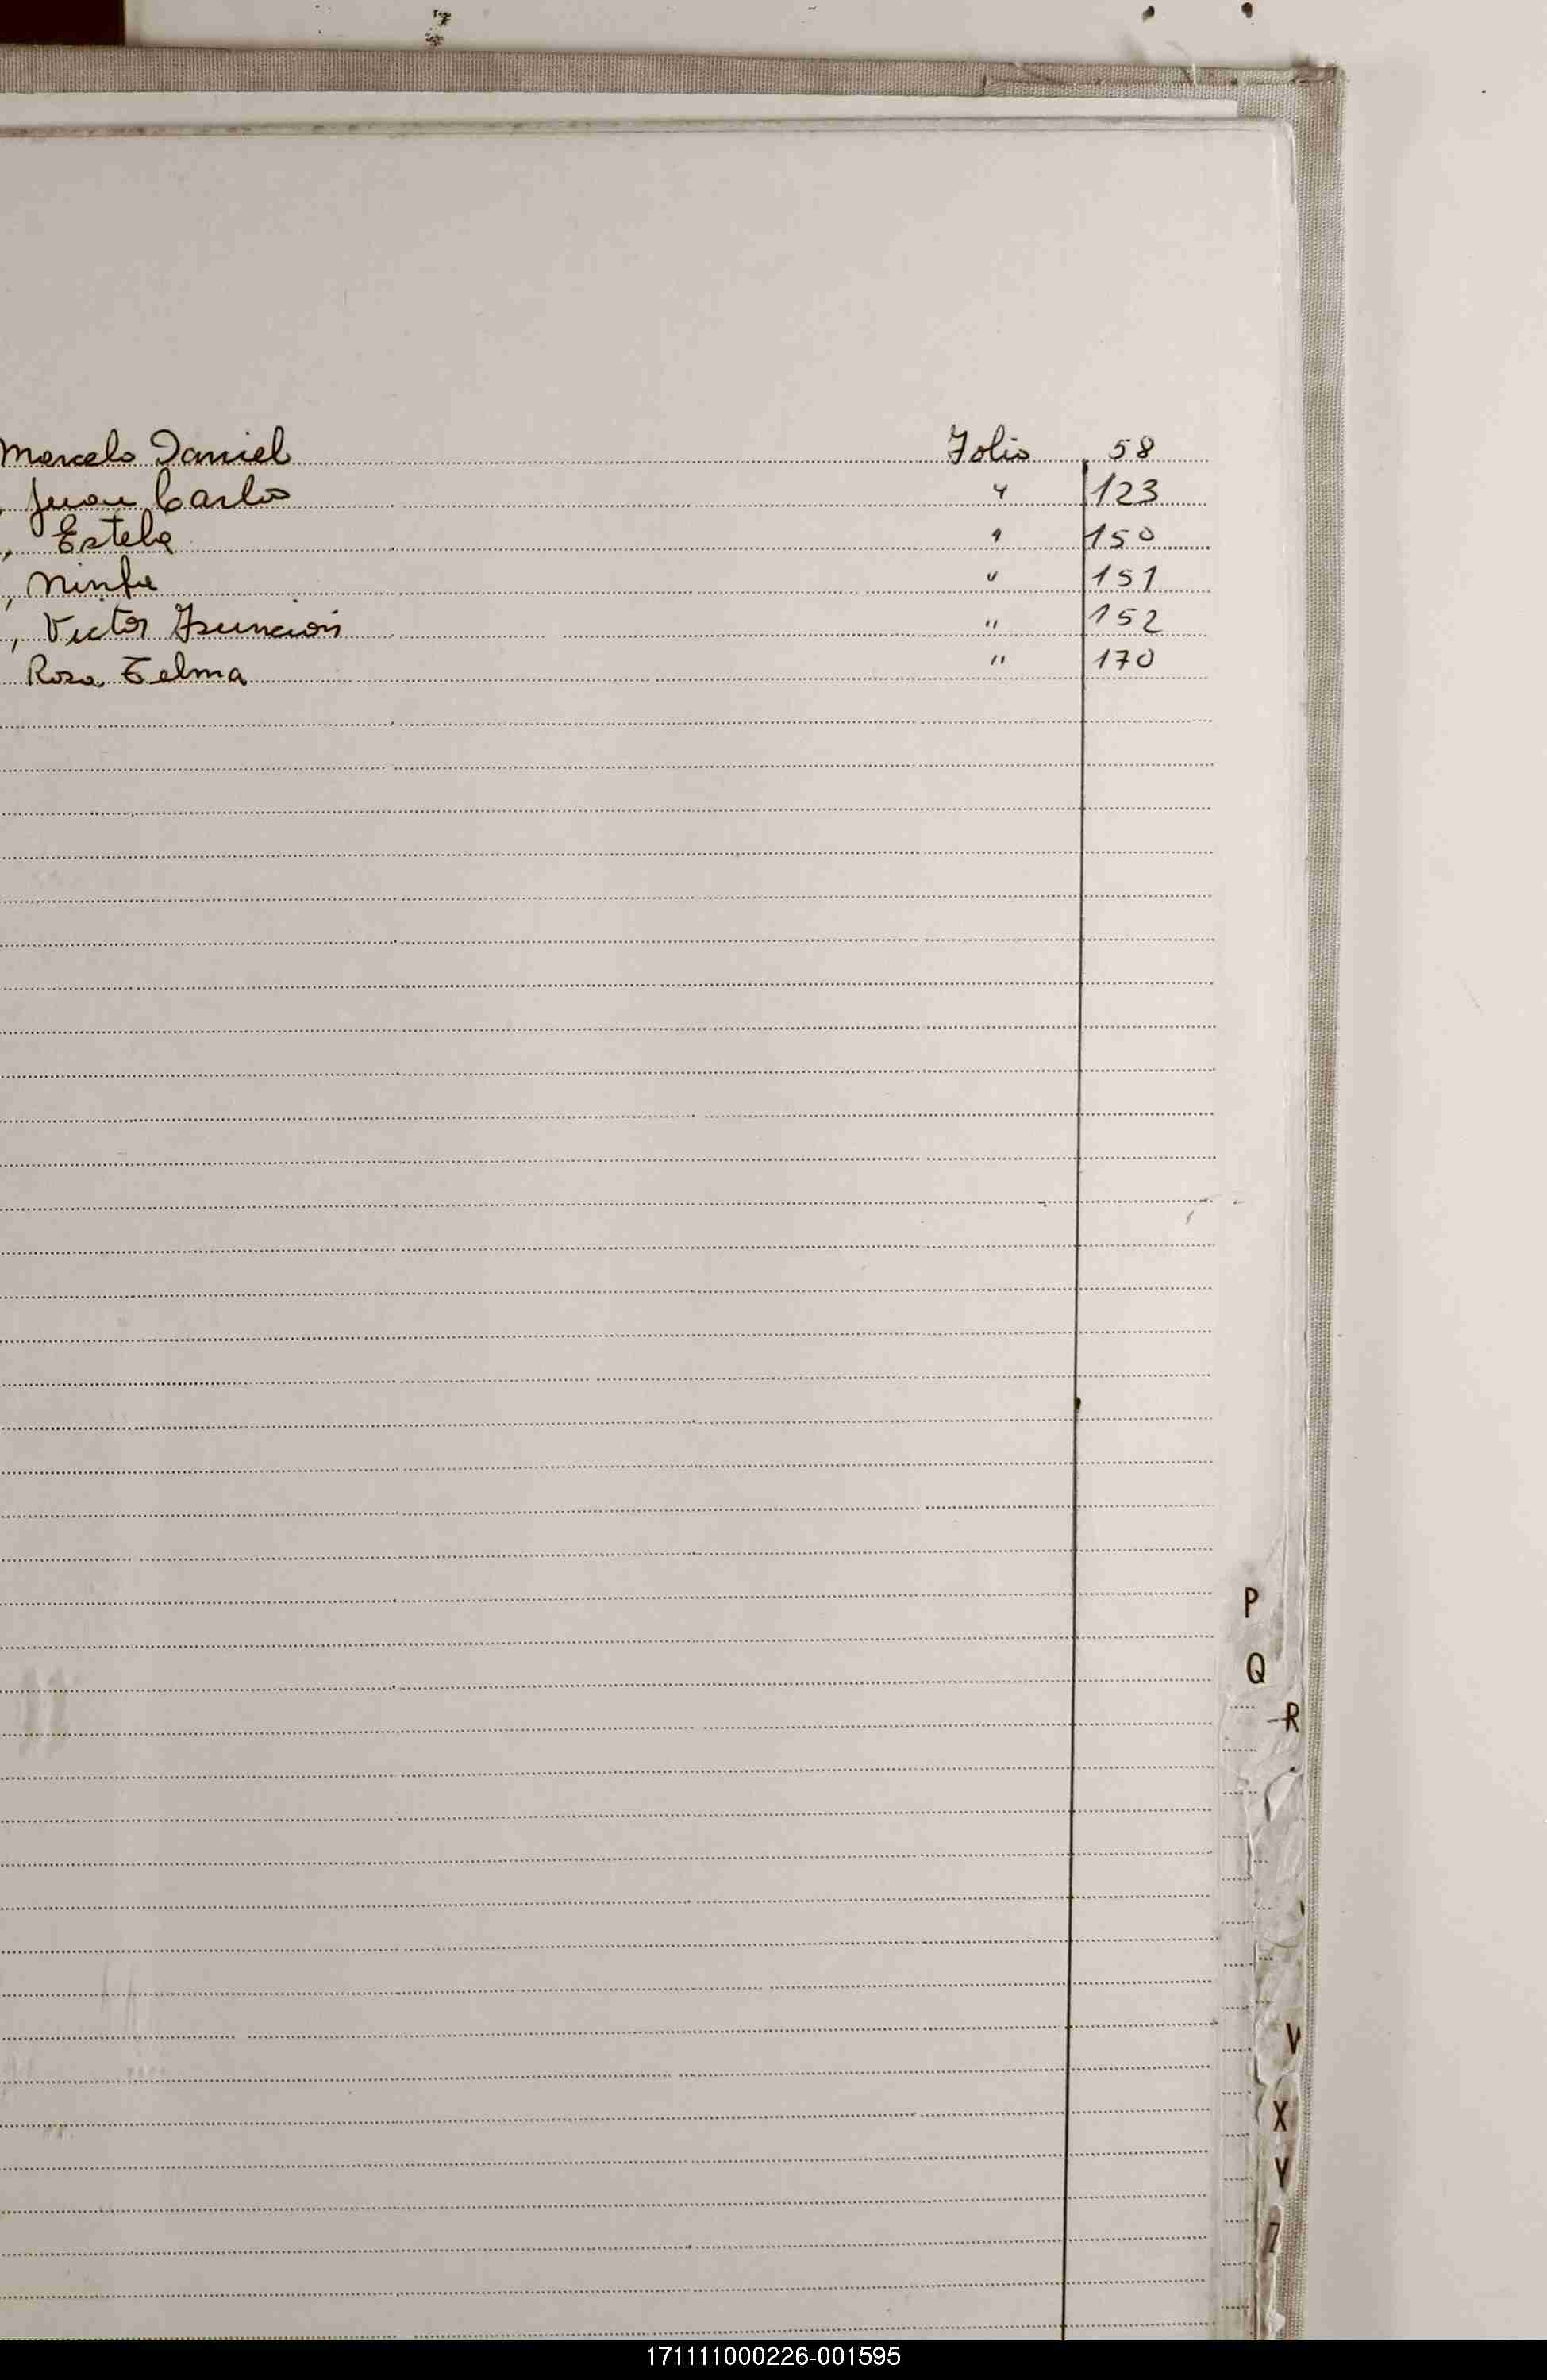 Marcelo Daniel Folio 58
, Juan Carlos " 123
, Estela " 150
, Ninfa " 151
, Victor Asuncion " 152
Rosa Telma " 170
P
Q
R
V
X
Y
Z
171111000226-001595